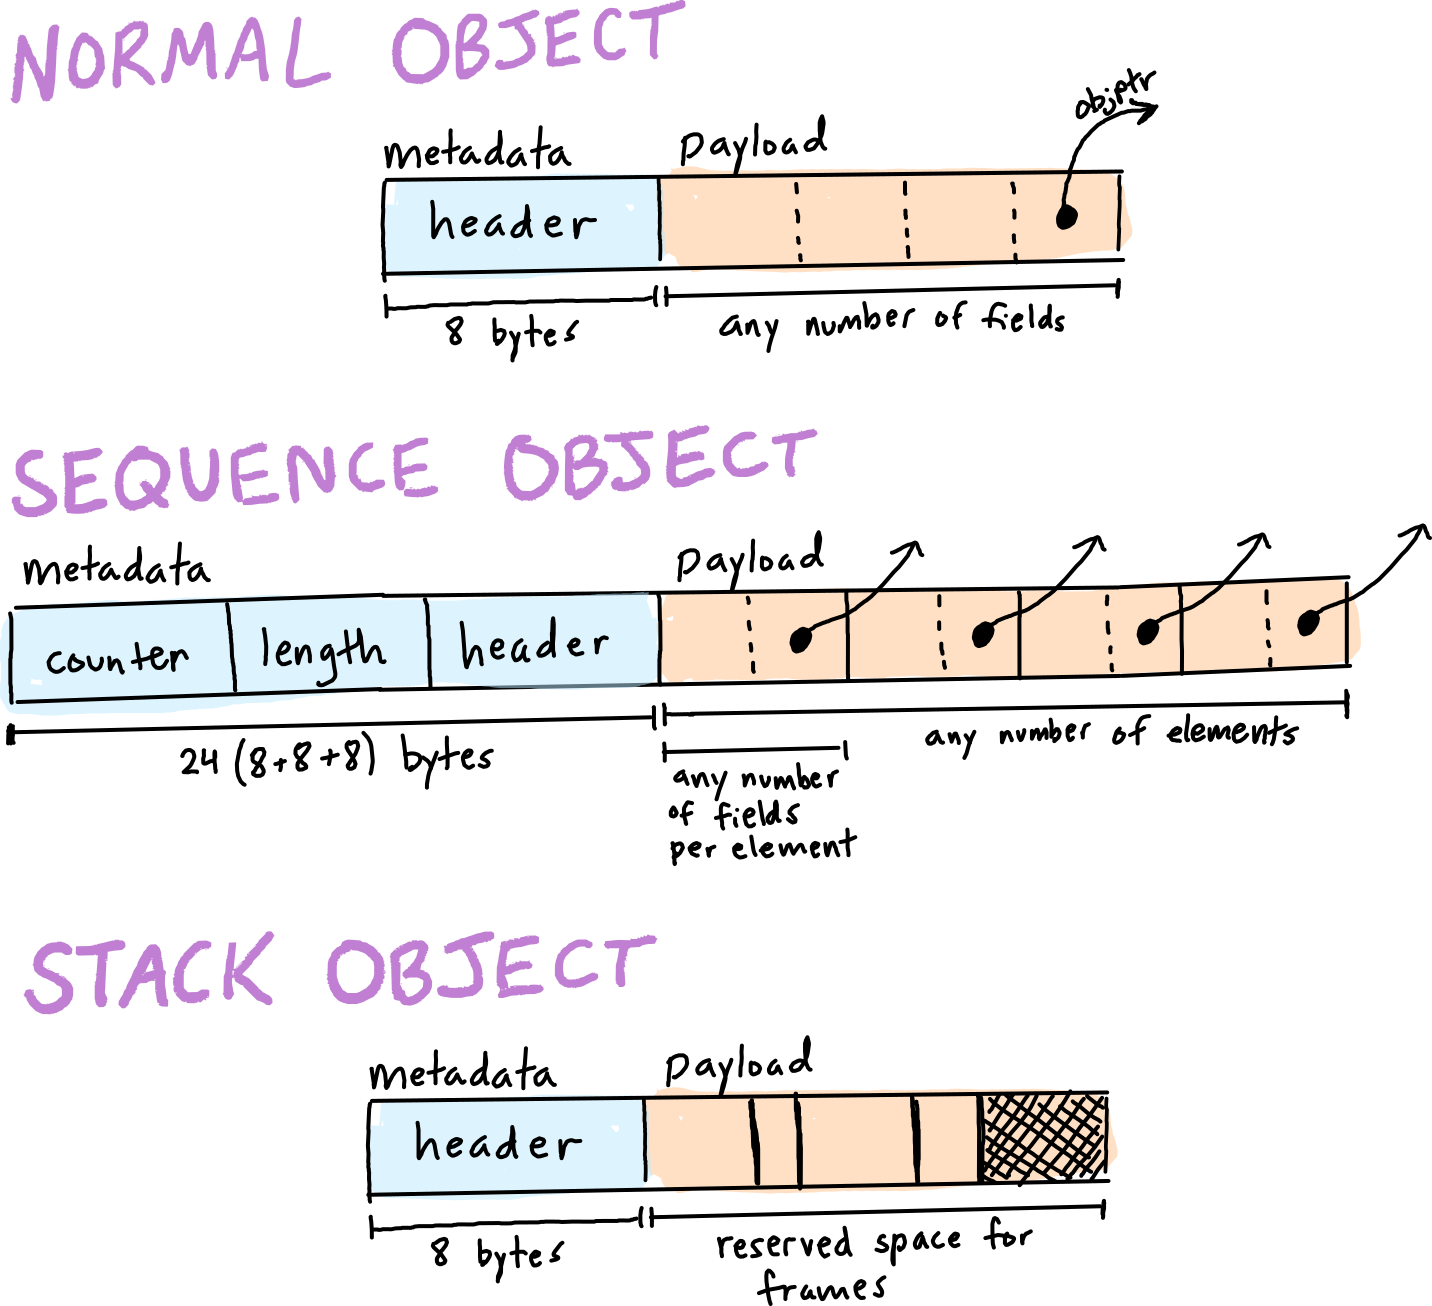 NORMAL OBJECT
objptr
metadata payload
header
8 bytes any number of fields
SEQUENCE OBJECT
metadata payload
counter length header
24 (8+8+8) bytes any number of elements
any number
of fields
per element
STACK OBJECT
metadata payload
header
8 bytes reserved space for
frames